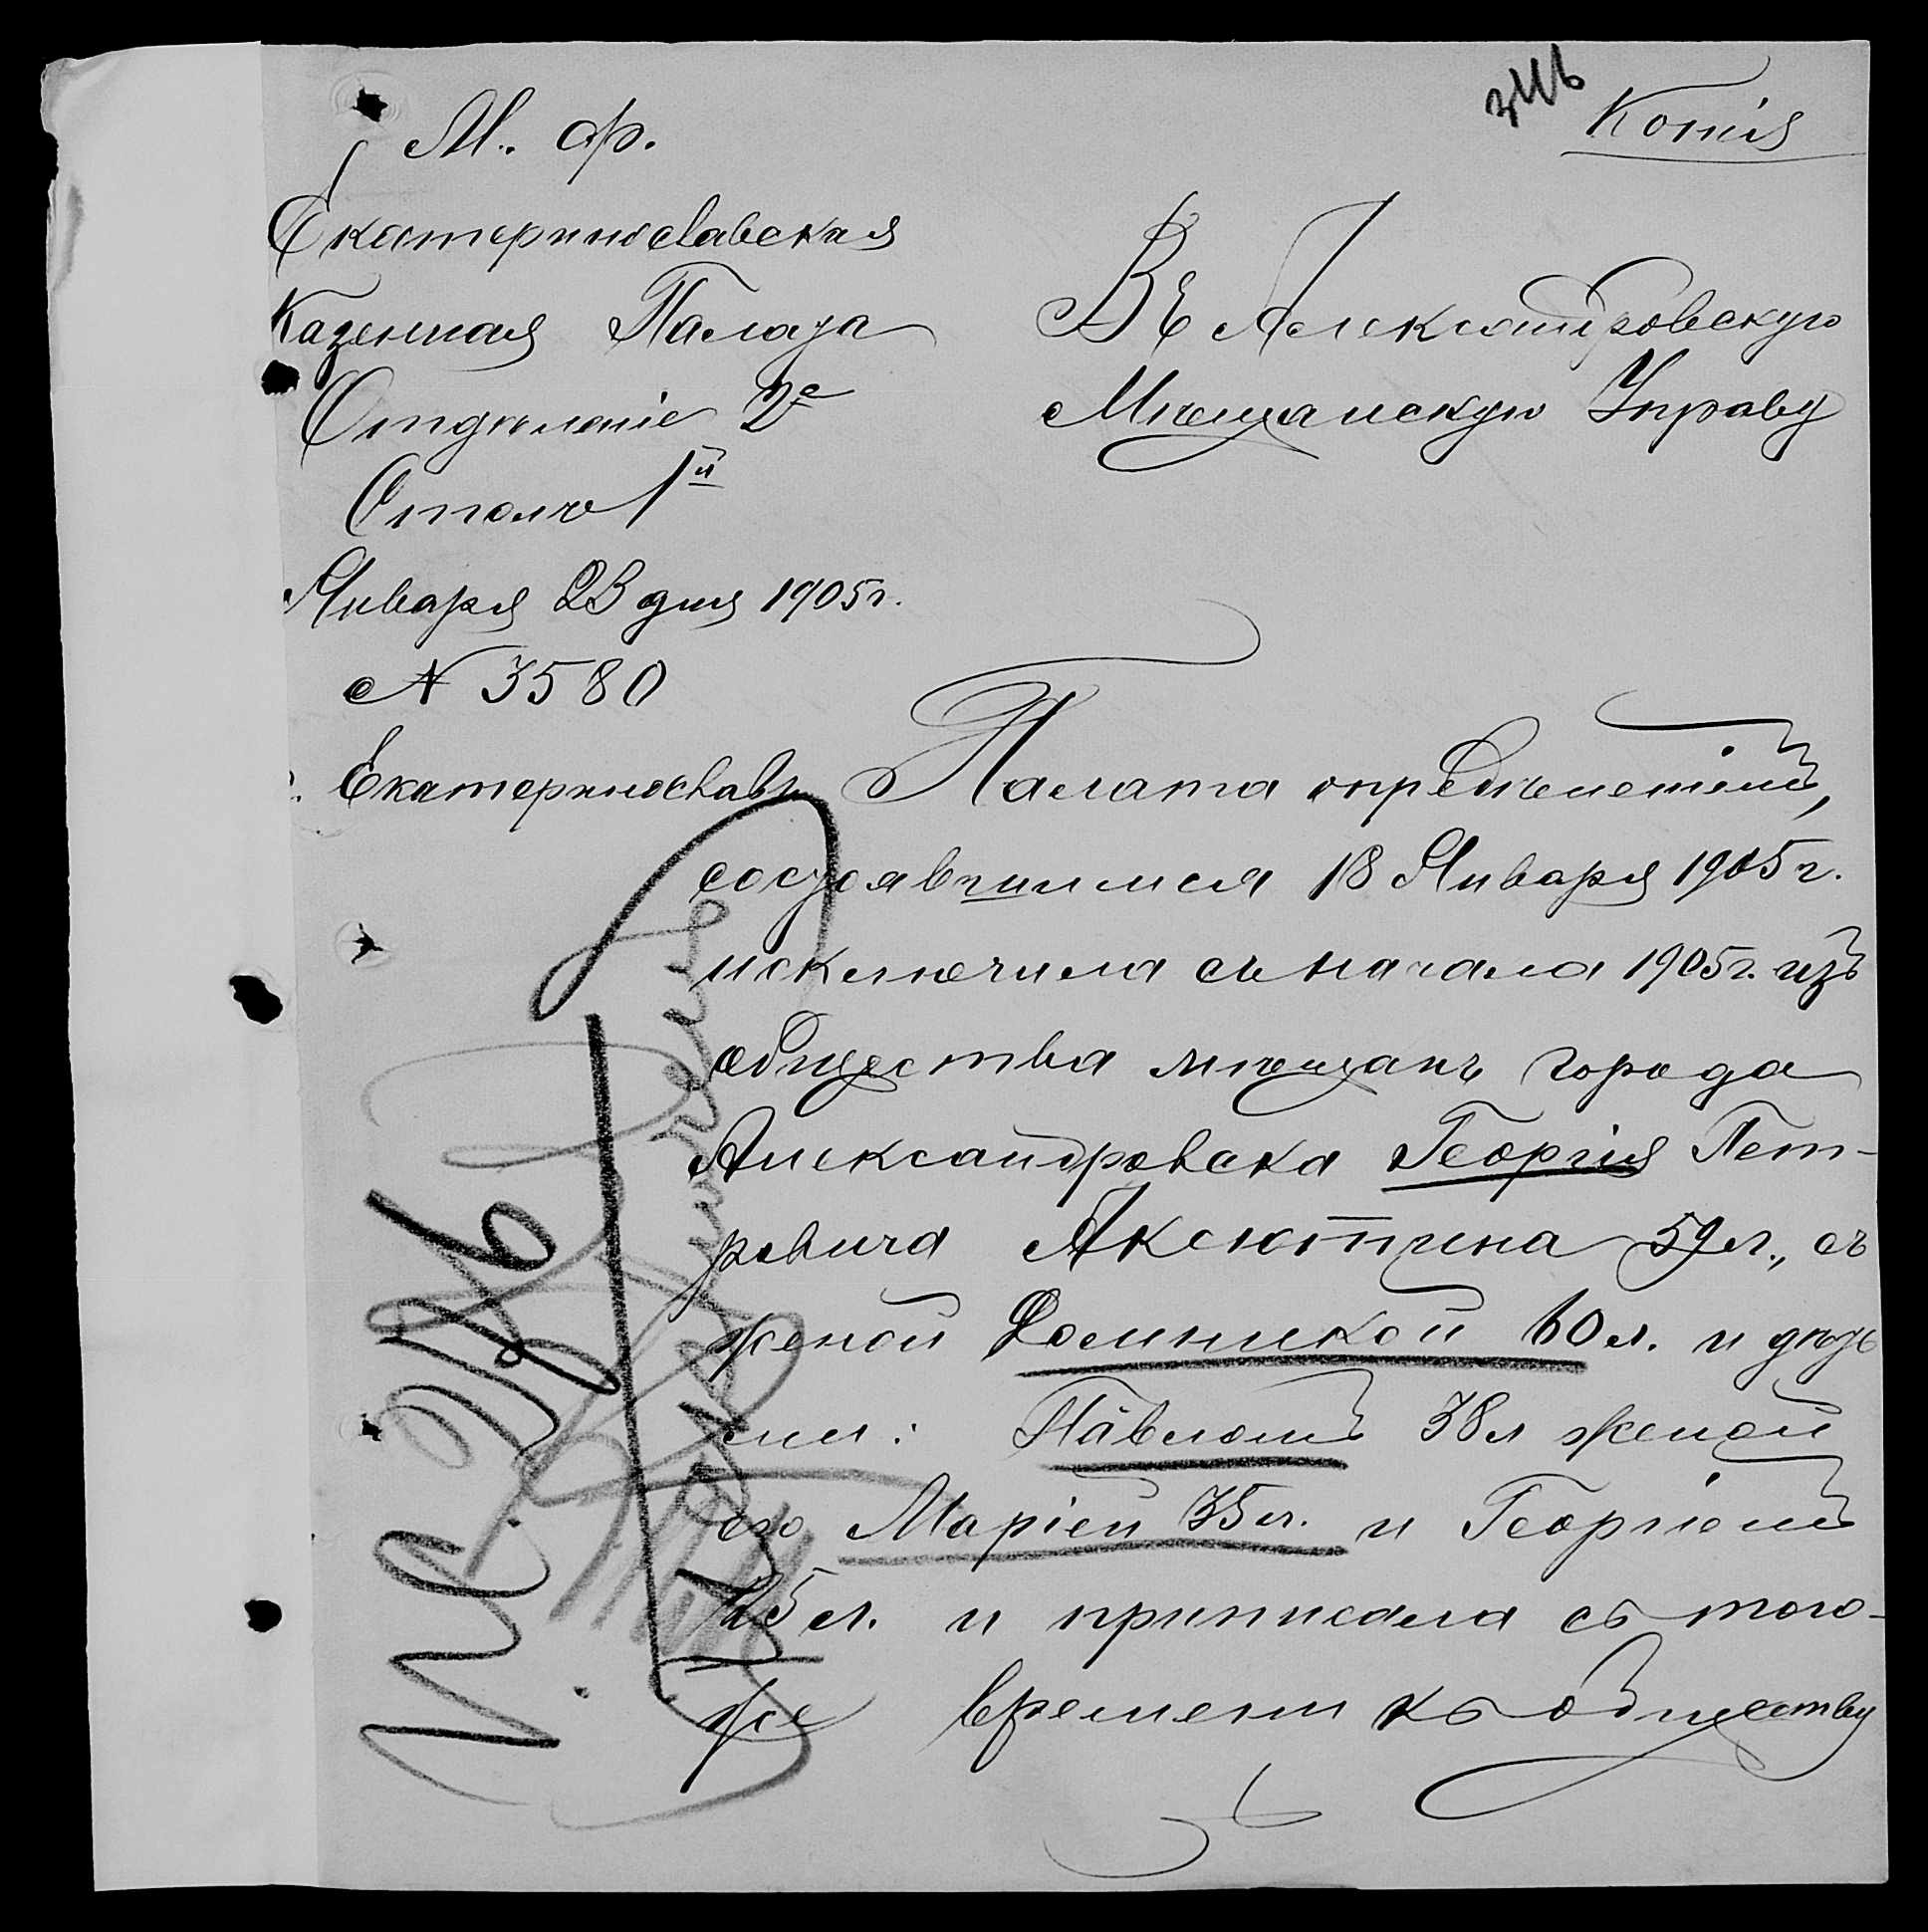 Копія
М. Ф.
Екатеринославская
Казенная Палата
Отдѣленіе 2е
Столъ 1й
Января 23 дня 1905 г.
№ 3580
г. Екатеринославъ
Въ Александровскую
Мѣщанскую Управу
Палата опредѣленіемъ,
состоявшимся 18 Января 1905 г.
исключила съ начала 1905 г. изъ
общества мѣщанъ города
Александровска Георгія Пет-
ровича Аксютина 59 л., съ
женой Домникой 60 л. и дѣть
ми: Павломъ 38 л женой
его Маріей 35 л. и Георгіемъ
25 л. и приписала съ того-
же времени къ обществу